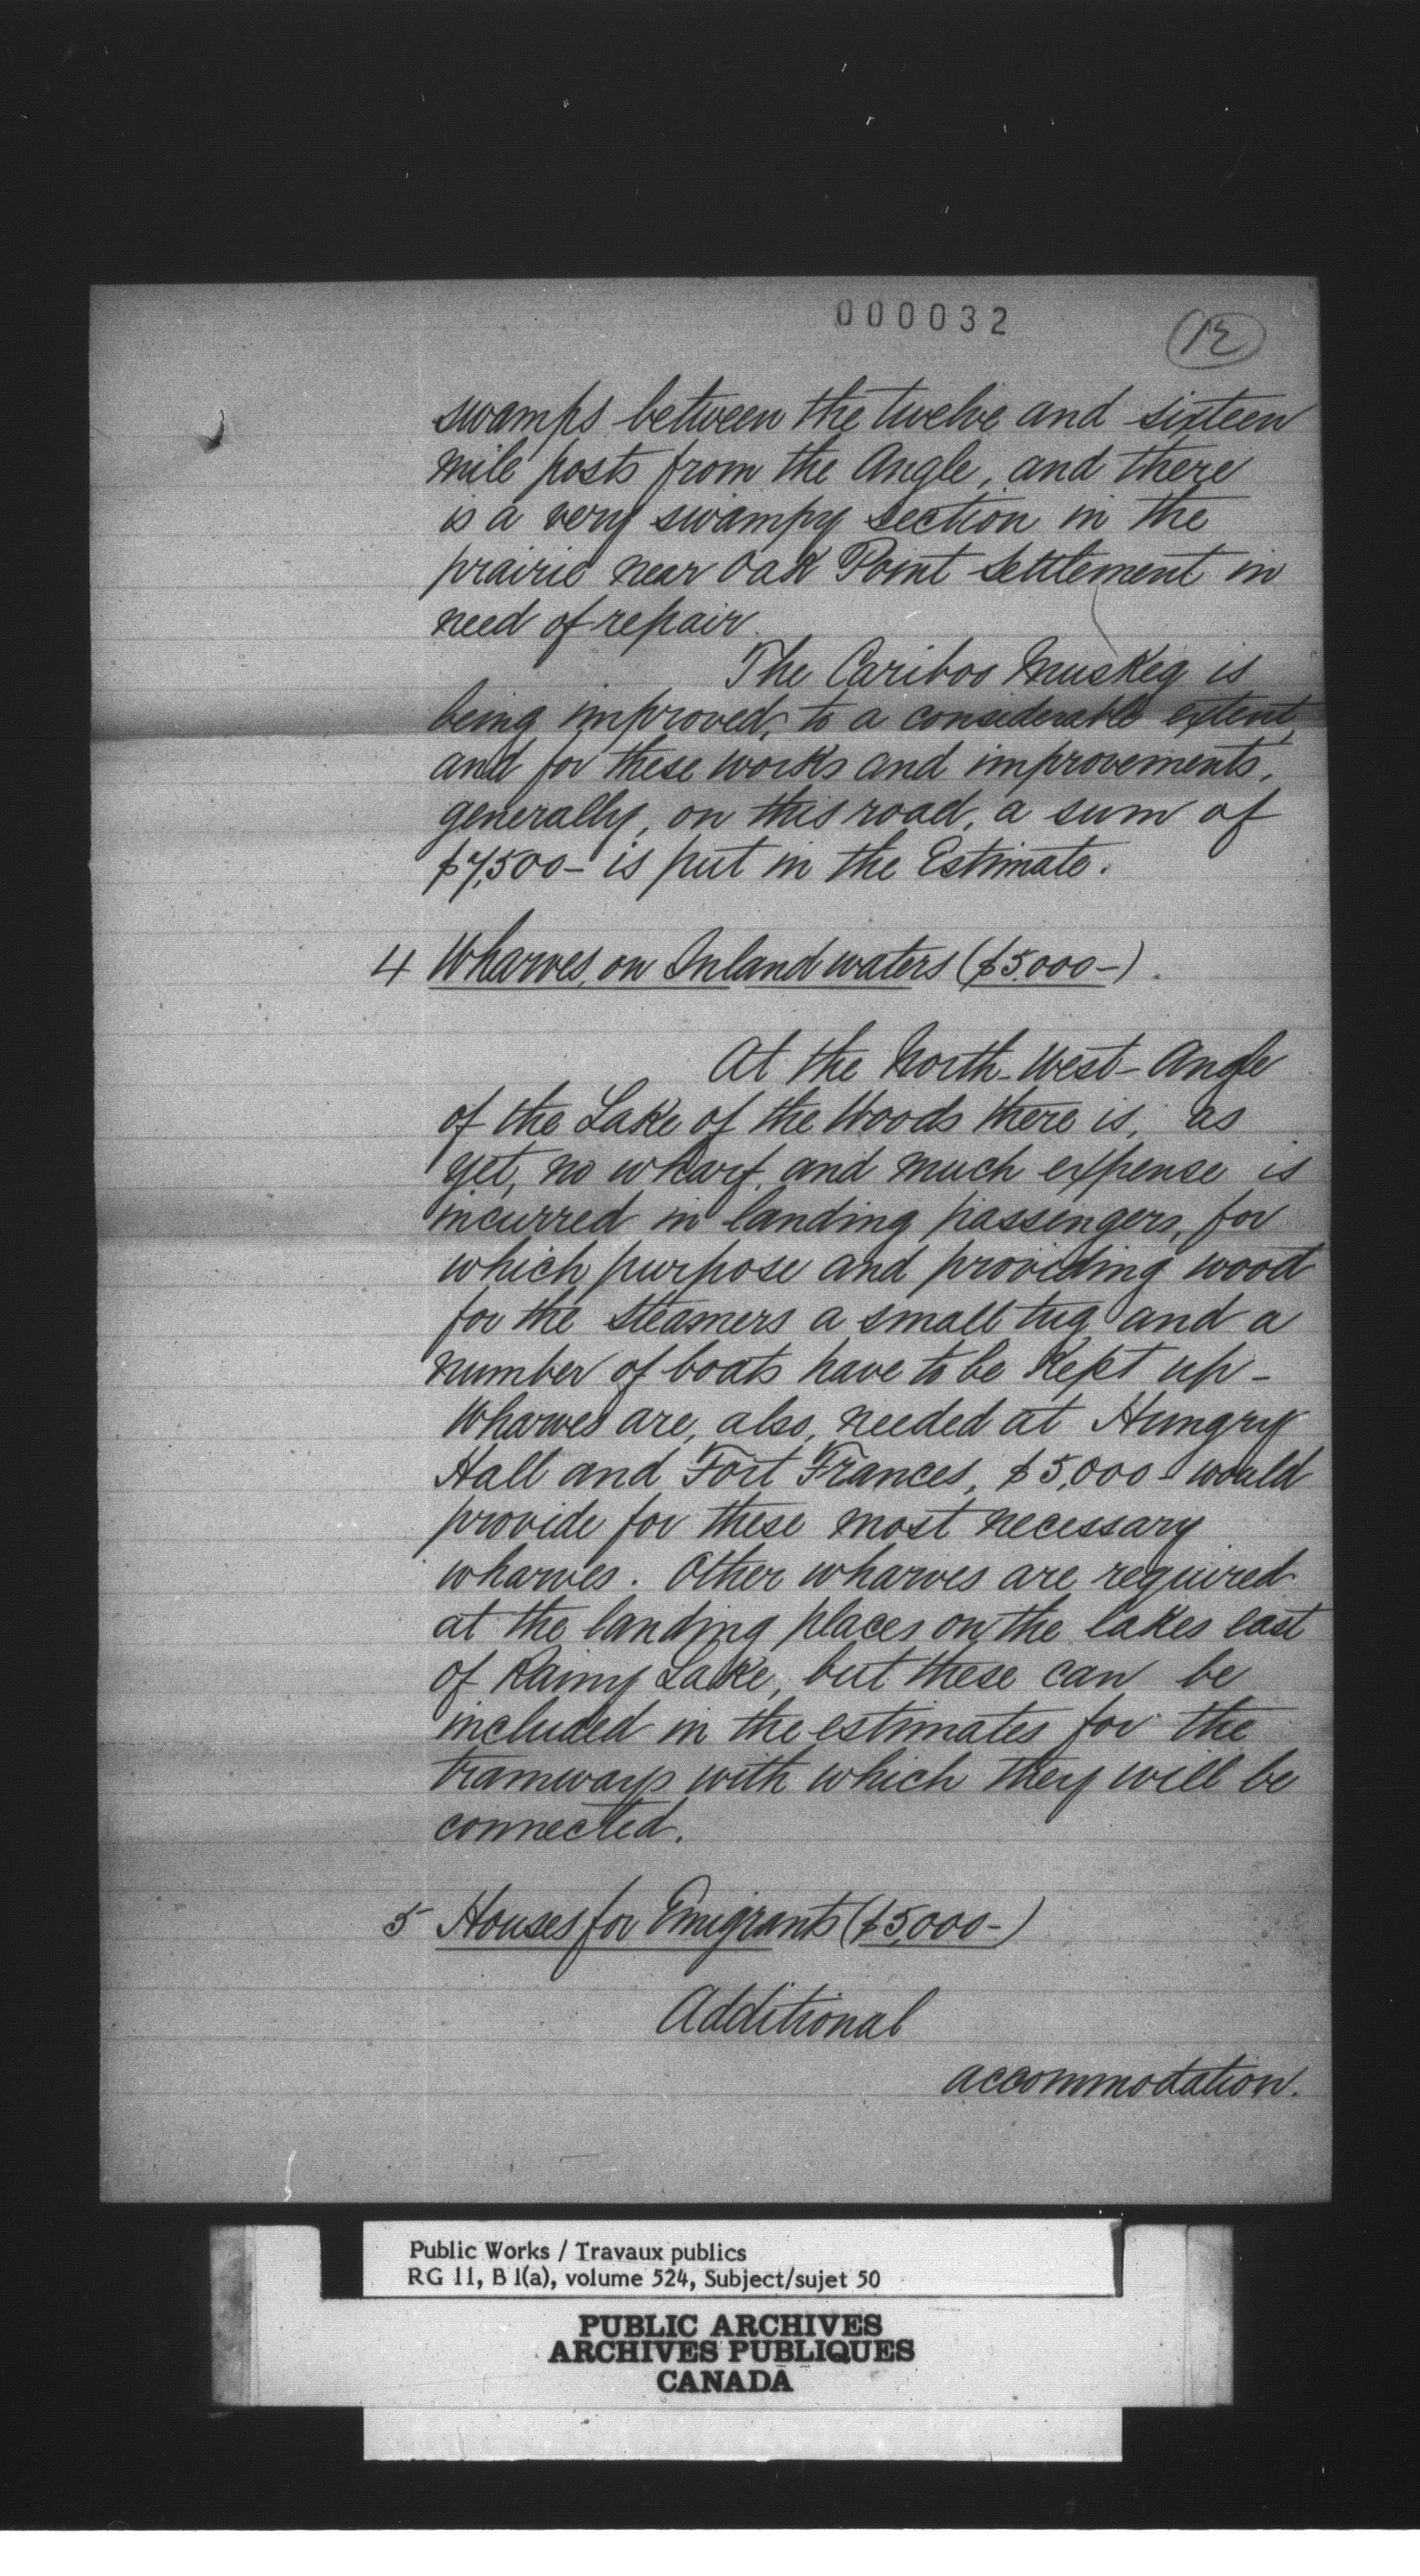 000032
12
swamps between the twelve and sixteen
mile posts from the Angle, and there
is a very swampy section in the
prairie near Oak Point Settlement in
need of repair.
The Cariboo Muskeg is
being improved, to a considerable extent,
and for these works and improvements,
generally, on this road, a sum of
$7,500- is put in the Estimate.
4 Wharves, on Inland waters ($5.000-).
At the North-West-Angle
of the Lake of the Woods there is, as
yet, no wharf, and much expense is
incurred in landing passengers, for
which purpose and providing wood
for the steamers a small tug and a
number of boats have to be kept up -
Wharves are, also, needed at Hungry
Hall and Fort Frances, $5,000- would
provide for these most necessary
wharves. Other wharves are required
at the landing places on the lakes east
of Rainy Lake, but these can be
included in the estimates for the
tramways with which they will be
connected.
5 Houses for Emigrants ($5,000-)
Additional
accommodation.
Public Works / Travaux publics
RG 11, B 1(a), volume 524, Subject/sujet 50
PUBLIC ARCHIVES
ARCHIVES PUBLIQUES
CANADA